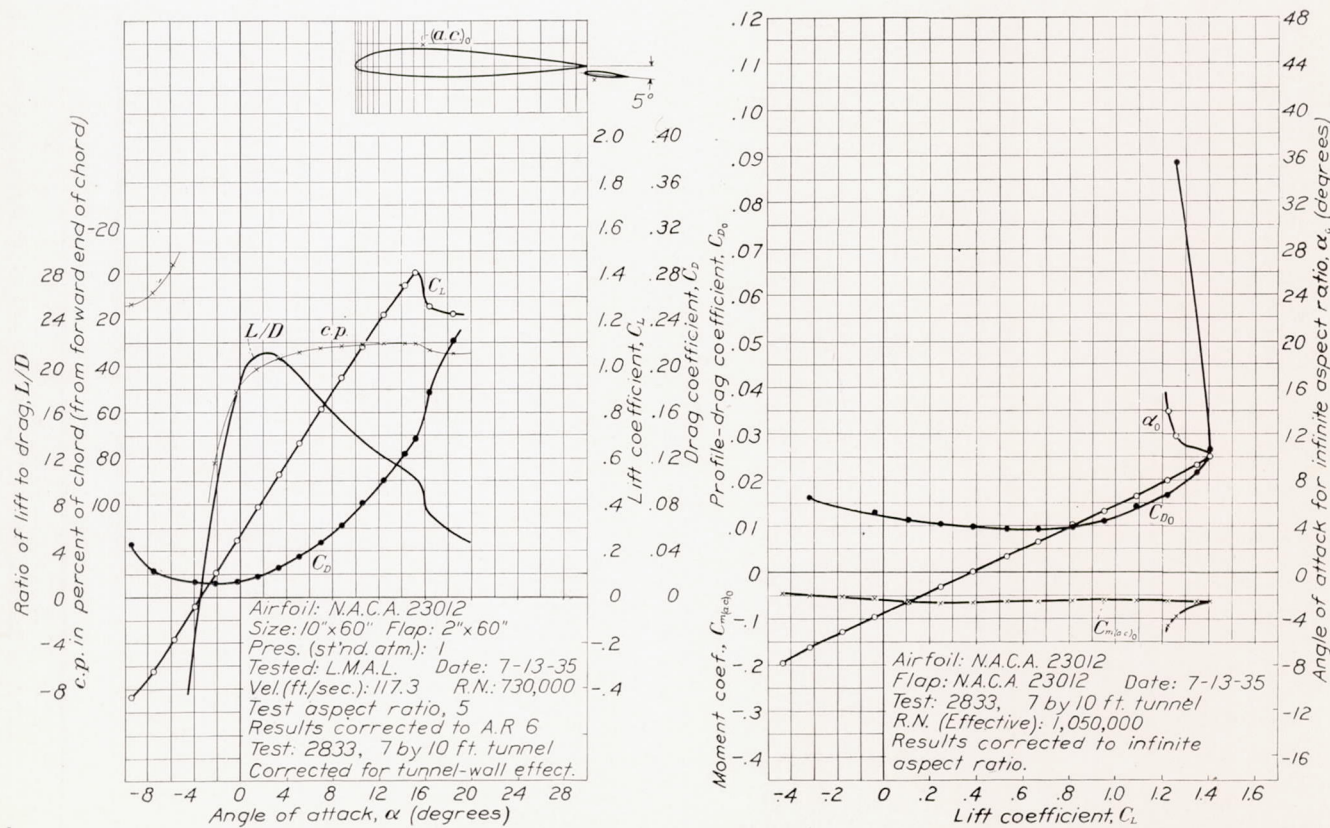 (a.c.)₀
5°
Ratio of lift to drag, L/D
28
24
20
16
12
8
4
0
-4
-8
c.p. in percent of chord (from forward end of chord)
-20
0
20
40
60
80
100
L/D
c.p.
C_L
C_D
2.0 .40
1.8 .36
1.6 .32
1.4 .28
1.2 .24
1.0 .20
.8 .16
.6 .12
.4 .08
.2 .04
0 0
-.2
-.4
Lift coefficient, C_L
Drag coefficient, C_D
Airfoil: N.A.C.A. 23012
Size: 10"x60" Flap: 2"x60"
Pres. (st'nd. atm.): 1
Tested: L.M.A.L. Date: 7-13-35
Vel.(ft./sec.): 117.3 R.N.: 730,000
Test aspect ratio, 5
Results corrected to A.R 6
Test: 2833, 7 by 10 ft. tunnel
Corrected for tunnel-wall effect.
-8 -4 0 4 8 12 16 20 24 28
Angle of attack, α (degrees)
Profile-drag coefficient, C_D₀
.12
.11
.10
.09
.08
.07
.06
.05
.04
.03
.02
.01
0
-.1
-.2
-.3
-.4
Moment coef., C_m(a.c.)₀
α₀
C_D₀
C_m(a.c.)₀
48
44
40
36
32
28
24
20
16
12
8
4
0
-4
-8
-12
-16
Angle of attack for infinite aspect ratio, α₀ (degrees)
Airfoil: N.A.C.A. 23012
Flap: N.A.C.A. 23012 Date: 7-13-35
Test: 2833, 7 by 10 ft. tunnel
R.N. (Effective): 1,050,000
Results corrected to infinite
aspect ratio.
-.4 -.2 0 .2 .4 .6 .8 1.0 1.2 1.4 1.6
Lift coefficient, C_L